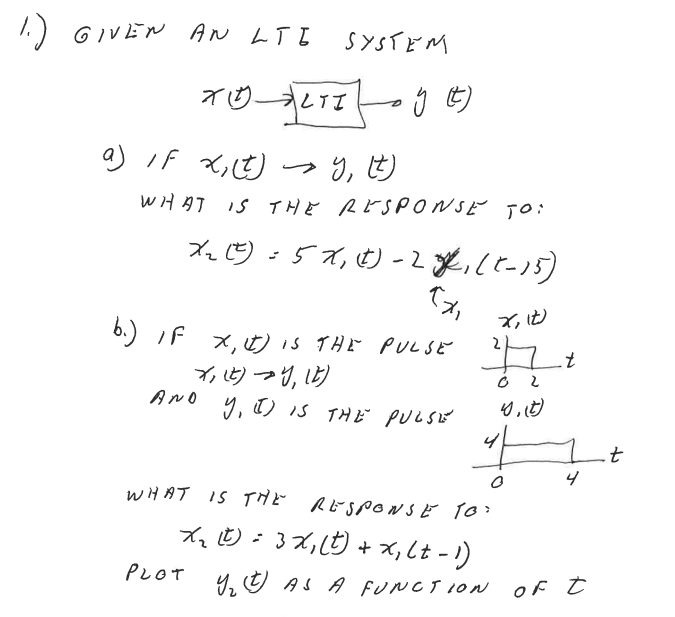 1.) GIVEN AN LTI SYSTEM
x(t) → LTI → y(t)
a) IF x₁(t) → y₁(t)
WHAT IS THE RESPONSE TO:
x₂(t) = 5x₁(t) - 2x₁(t-15)
↑x₁
x₁(t)
b.) IF x₁(t) IS THE PULSE
2
t
0 2
x₁(t) → y₁(t)
AND y₁(t) IS THE PULSE
y₁(t)
4
t
0 4
WHAT IS THE RESPONSE TO:
x₂(t) = 3x₁(t) + x₁(t-1)
PLOT y₂(t) AS A FUNCTION OF t